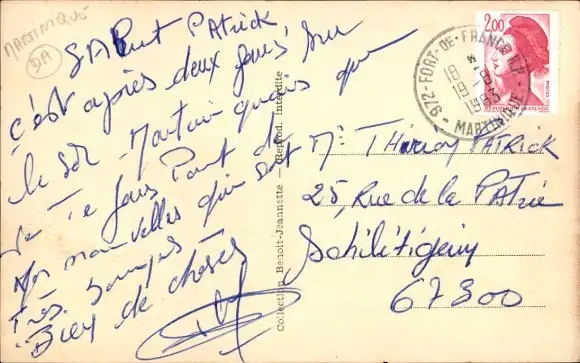 MARTINIQUE
SALut PAtRick
c'est après deux jours sur
le sol Martiniquais que
Je Te fais Part de
Mes nouvelles qui sont
Très
Bien de choses
Collection Benoit-Jeannette - Reprod. interdite
2,00
972-FORT-DE-FRANCE R.P.
18 H
19-8
1983
MARTINIQUE
Mr THierry PATRICK
25, Rue de la PATrie
Schiltigeim
67300